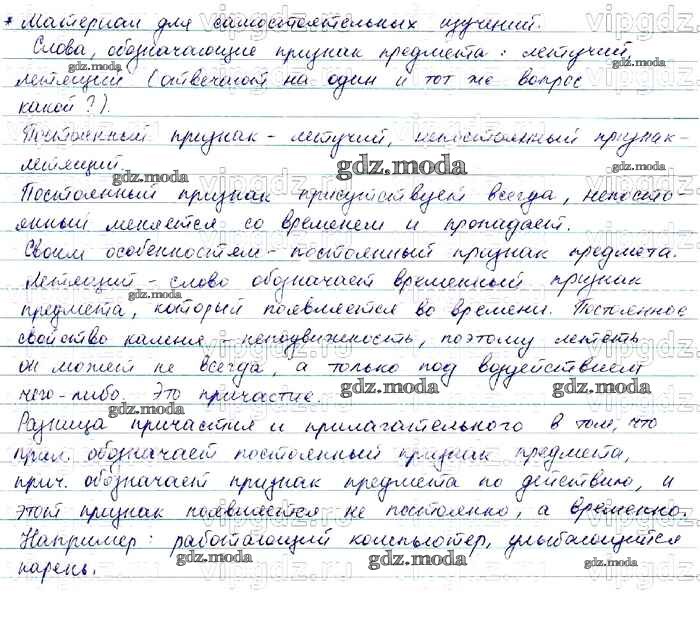 * Материал для самостоятельных изучений.
Слова, обозначающие признак предмета: летучий,
летящий (отвечают на один и тот же вопрос
какой?).
Постоянный признак - летучий, непостоянный признак -
летящий.
Постоянный признак присутствует всегда, непосто-
янный меняется со временем и пропадает.
Своим особенностям - постоянный признак предмета.
Летящий - слово обозначает временный признак
предмета, который появляется во времени. Постоянное
свойство камня - неподвижность, поэтому лететь
он может не всегда, а только под воздействием
чего-либо. Это причастие.
Разница причастия и прилагательного в том, что
прил. обозначает постоянный признак предмета,
прич. обозначает признак предмета по действию, и
этот признак появляется не постоянно, а временно.
Например: работающий компьютер, улыбающийся
парень.